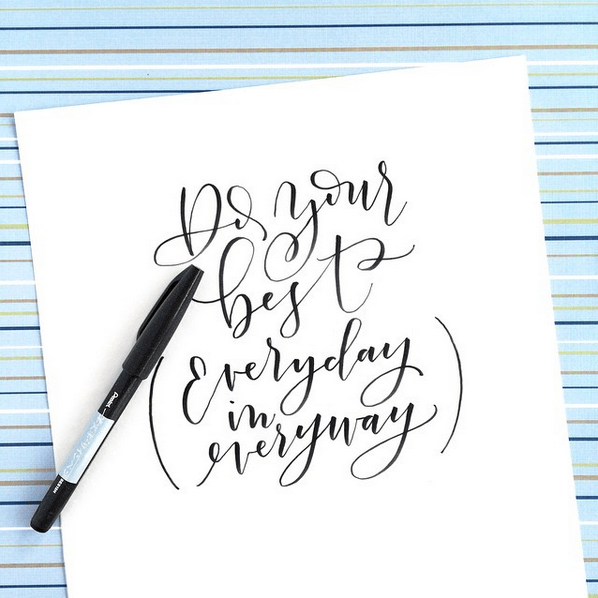 Do your
best
(Everyday
in
everyway)
Pentel